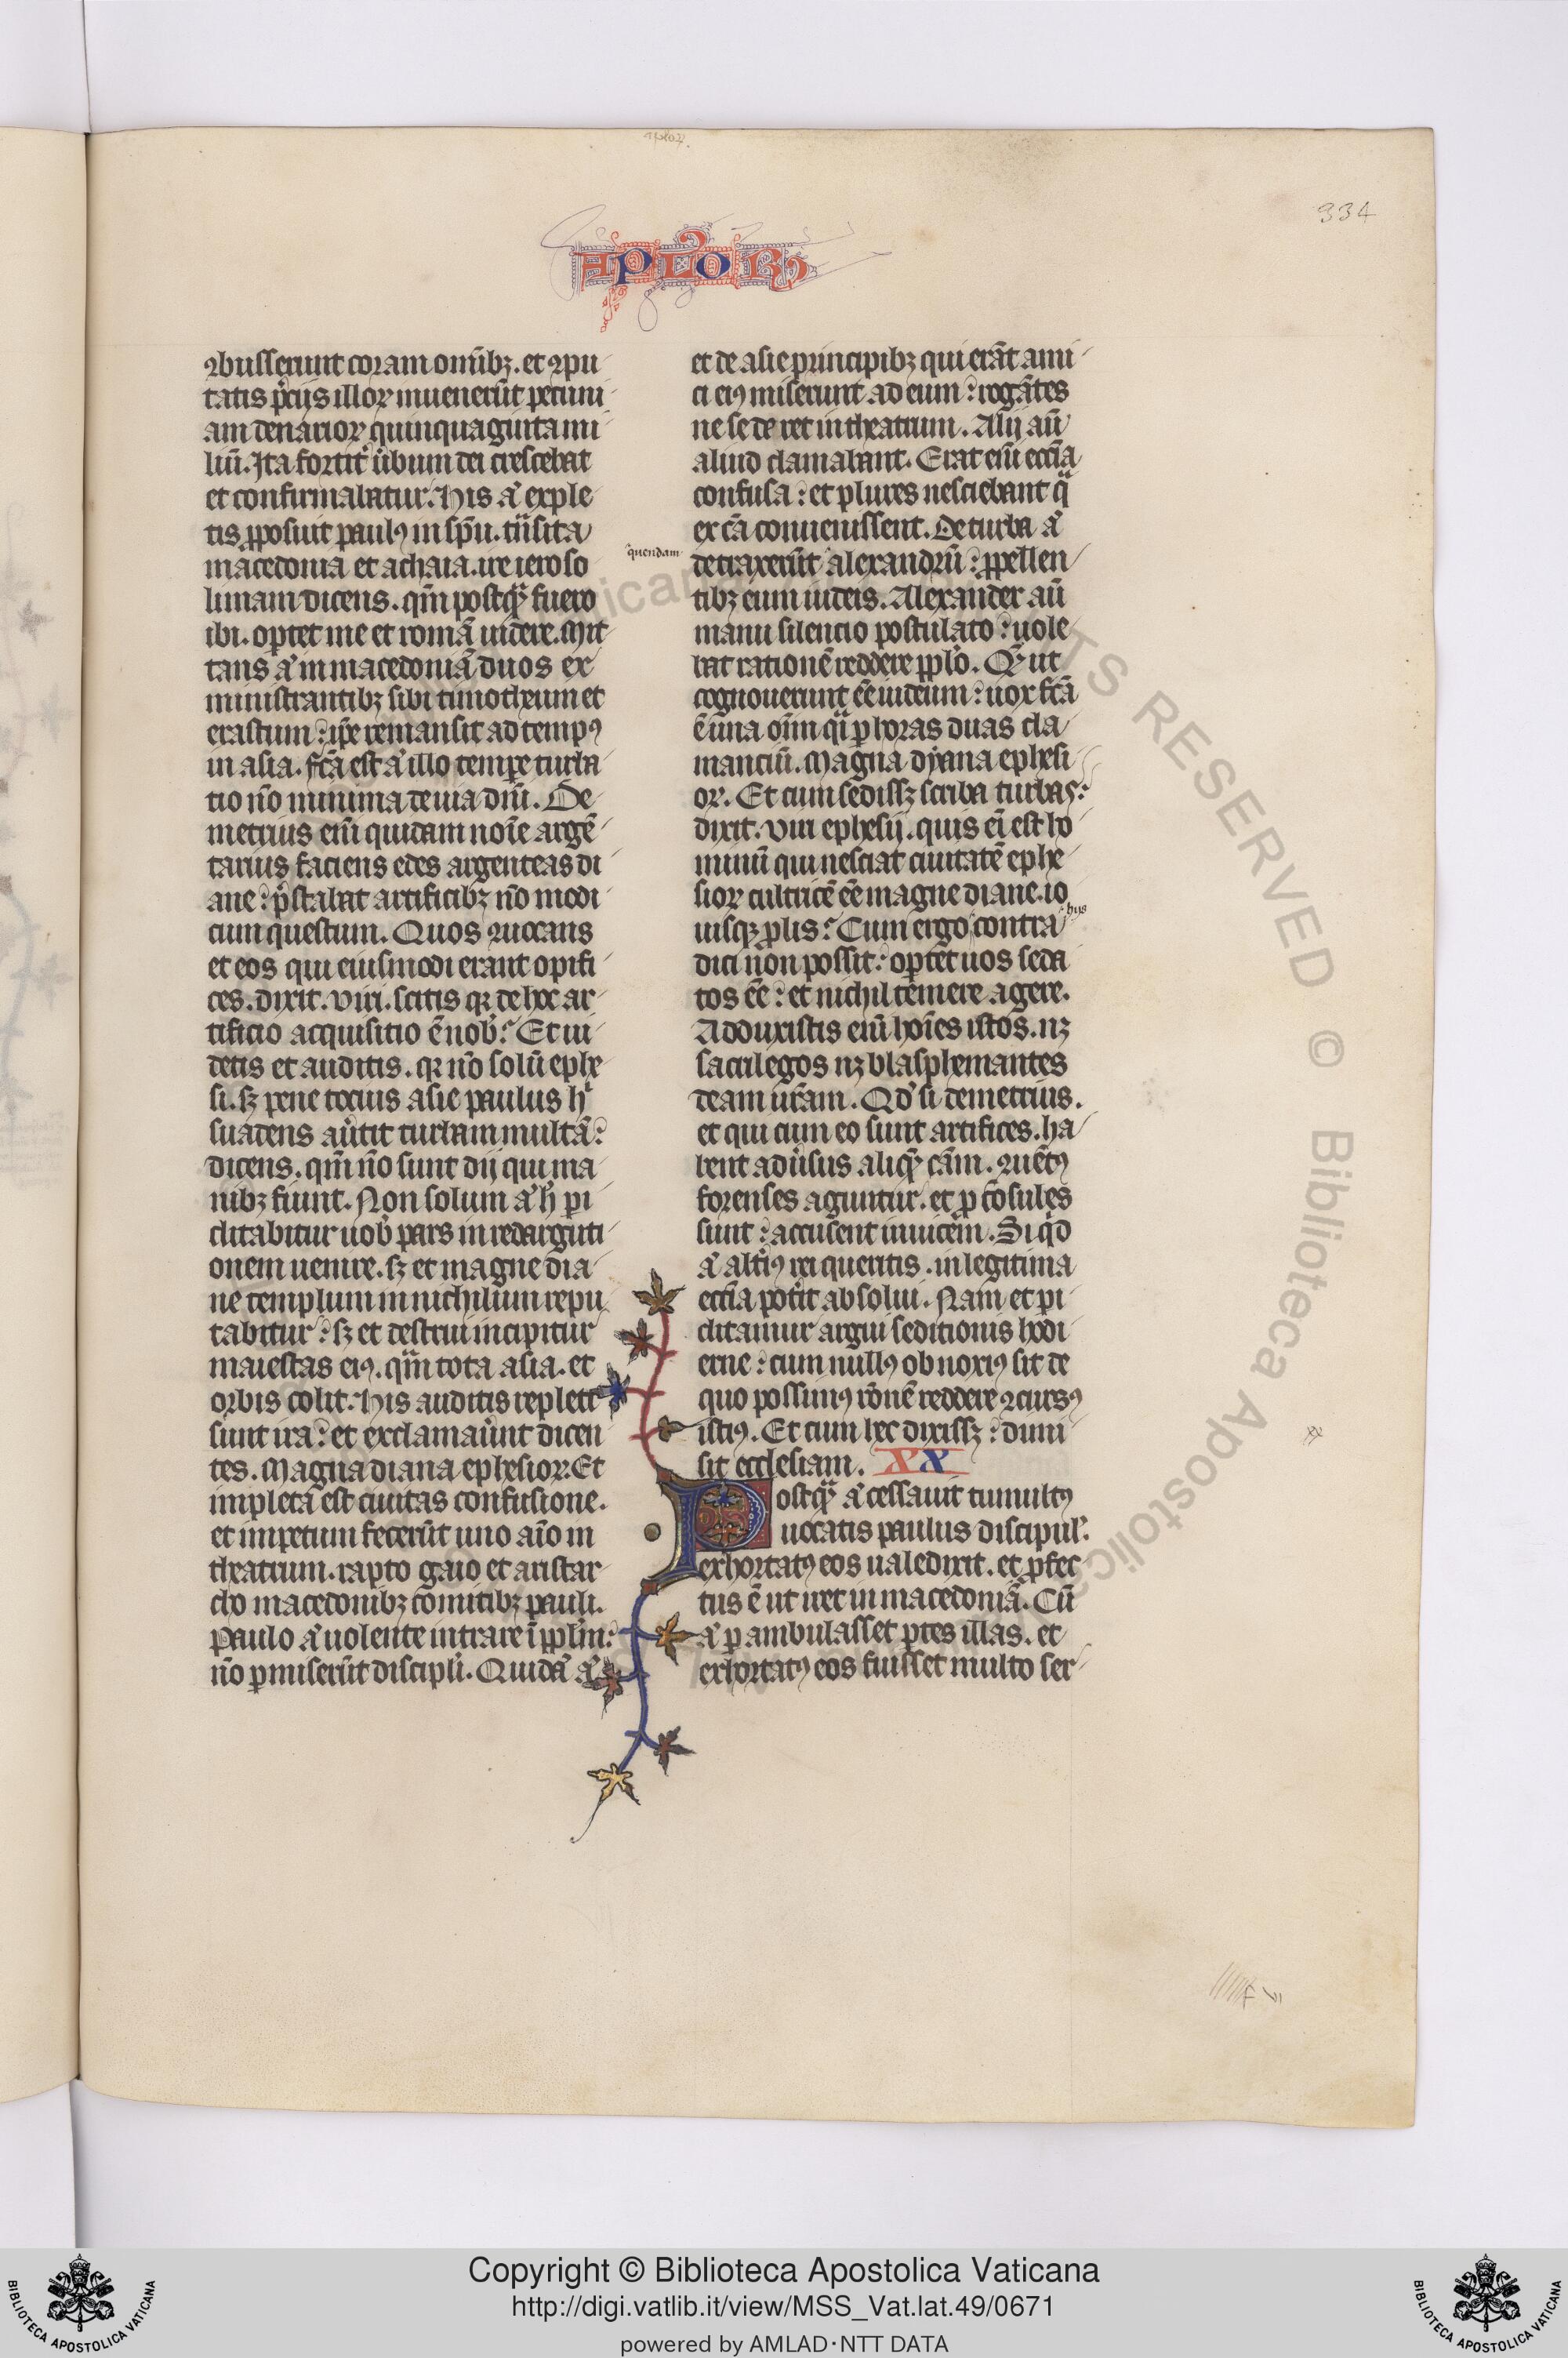 aploꝝ.
334
APLOꝜ
ꝯbusserunt coram omībꝫ. et ꝯpu
tatis p̄cijs illoꝝ inuenerūt pecuni
am denarioꝝ quinquaginta mi
liū. Ita fortit̾ ūbum dei crescebat
et confirmabatur. His aͣ exple
tis ꝓposuit paulꝰ in sp̄u. tn̄sita
macedonia et achaia. ire ieroso
limam dicens. qm̄ postqͣ fuero
ibi. oportet me et romā uidere. Mit
tans aͣ in macedoniā duos ex
ministrantibꝫ sibi timotheum et
erastum: ip̄e remansit ad tempꝰ
in asia. fc̄a est aͣ illo tempe turba
tio nō minima de uia dn̄i. De
metrius eni̅ quidam noīe argē
tarius faciens edes argenteas di
ane: p̄stabat artificibꝫ nō modi
cum questum. Quos ꝯuocans
et eos qui eiusmodi erant opifi
ces. dixit. Viri. scitis qꝛ de hoc ar
tificio acquisitio ē nob̄. Et ui
detis et auditis. qꝛ nō solū ephe
si. sꝫ pene totius asie paulus hͥ
suadens aūtit turbam multā:
dicens. qm̄ nō sunt dij qui ma
nibꝫ fiunt. Non solum aͣ h̄ pi
clitabitur nob̄ pars in redarguti
onem uenire. sꝫ et magne dia
ne templum in nichilum repu
tabitur: sꝫ et destrui incipitur
maiestas eiꝰ. qm̄ tota asia. et
orbis colit. His auditis repleti
sunt ira: et exclamaūnt dicen
tes. Magna diana ephesioꝝ. Et
impleta est ciuitas confusione.
et impetum fecerūt uno aīo in
theatrum. rapto gaio et aristar
cho macedonibꝫ comitibꝫ pauli.
Paulo aͣ uolente intrare ī ppl̄m:
nō ꝑmiserūt discipl̄i. Quidā aͣ
et de asie principibꝫ qui erāt ami
ci eiꝰ miserunt ad eum: rogātes
ne se daret in theatrum. Alij aū
aliud clamabant. Erat eni̅ eccl̄ia
confusa: et plures nesciebant qͣ
ex cā conuenissent. De turba aͣ
quendam
detraxerūt alexandrū: ꝓpellen
tibꝫ eum iudeis. Alexander aū
manu silencio postulato: uole
bat rationē reddere ppl̄o. Qͫ ut
cognouerunt ēe iudeum: uox fc̄a
ē una oīm qͣi ꝑ horas duas cla
manciū. Magna dyana ephesi
oꝝ. Et cum sedissꝫ scriba turbas:
dixit. Viri ephesij. quis ei̅ est ho
minū qui nesciat ciuitatē ephe
sioꝝ cultricē ēe magne diane. io
uisqꝫ ꝓlis: Cum ergo contra
hijs
dici non possit: oportet uos seda
tos ēe: et nichil temere agere.
Adduxistis eni̅ hoīes istos. nꝫ
sacrilegos nꝫ blasphemantes
deam ur̄am. Qd̄ si demetrius.
et qui cum eo sunt artifices. ha
bent adūsus aliqͫ cām. ꝯuētꝰ
forenses aguntur. et ꝓ cōsules
sunt: accusent inuicem. Si qͥd
aͣ altiꝰ rei queritis. in legitima
eccl̄ia potit absolui. Nam et pi
clitamur argui seditionis hodi
erne: cum nullꝰ obnoxiꝰ sit de
quo possimꝰ rōnē reddere ꝯcursꝰ
istiꝰ. Et cum hec dixissꝫ: dimi
sit ecclesiam. XX
Postqͣ aͣ cessauit tumultꝰ
uocatis paulus discipul̄.
exhortatꝰ eos ualedixit. et ꝓfec
tus ē ut iret in macedoniā. Cū
aͣ ꝑambulasset ꝑtes illas. et
exhortatꝰ eos fuisset multo ser
xx
Copyright © Biblioteca Apostolica Vaticana
http://digi.vatlib.it/view/MSS_Vat.lat.49/0671
powered by AMLAD·NTT DATA
BIBLIOTECA APOSTOLICA VATICANA
BIBLIOTECA APOSTOLICA VATICANA